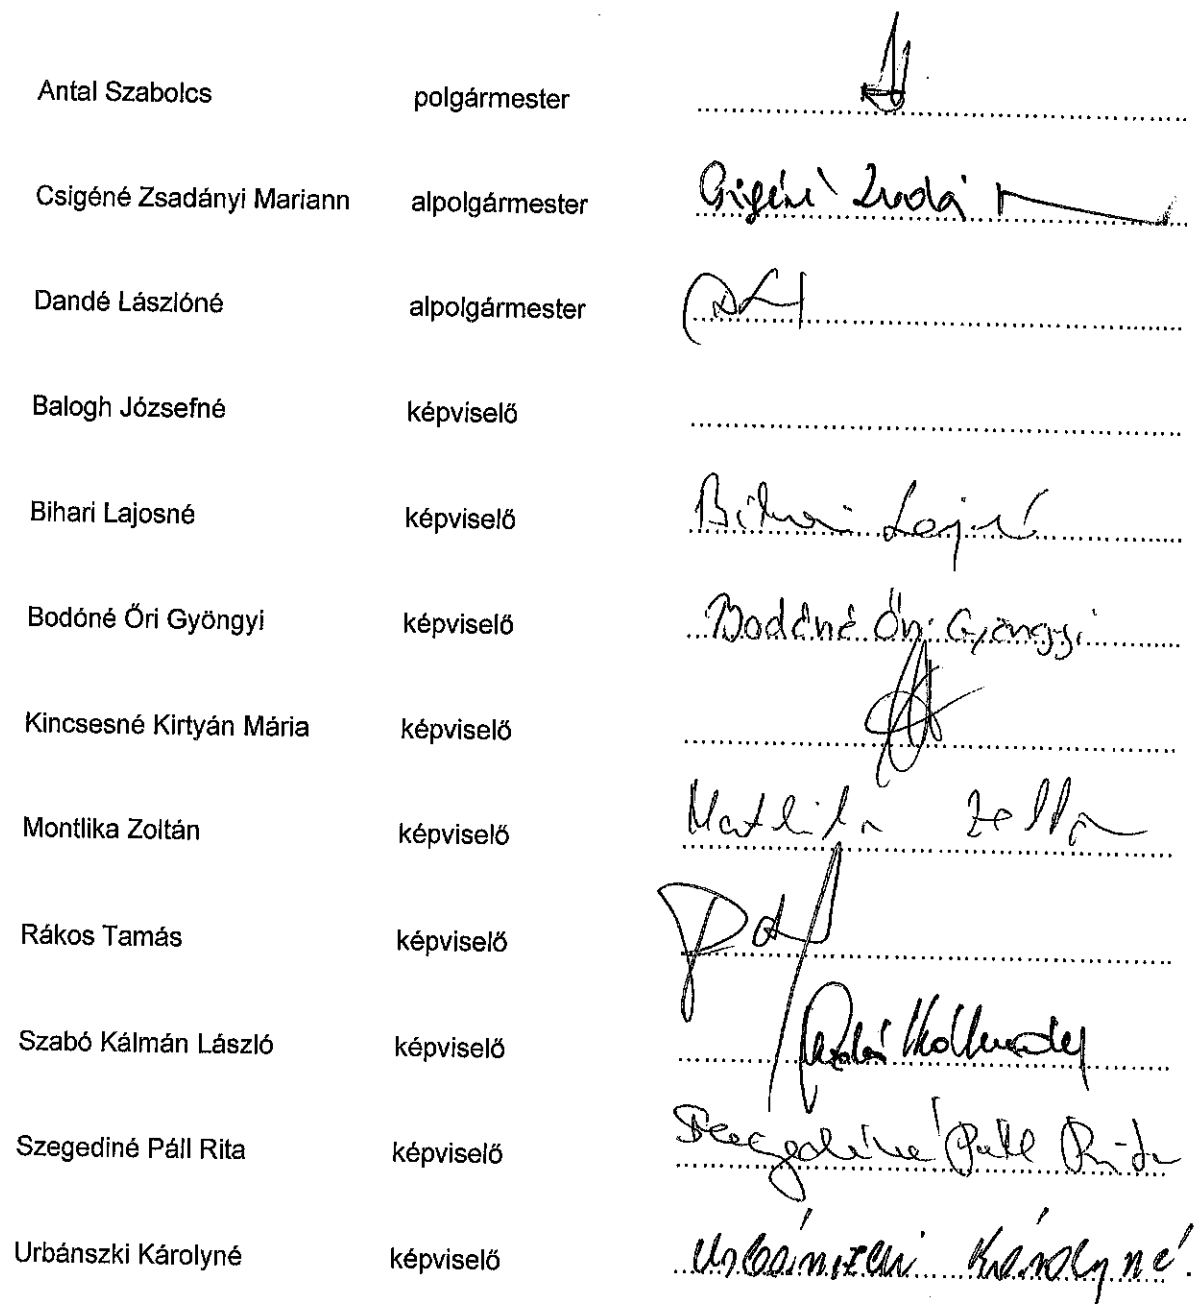 Antal Szabolcs polgármester
Csigéné Zsadányi Mariann alpolgármester
Dandé Lászlóné alpolgármester
Balogh Józsefné képviselő
Bihari Lajosné képviselő Bihari Lajosné
Bodóné Őri Gyöngyi képviselő Bodóné Őri Gyöngyi
Kincsesné Kirtyán Mária képviselő
Montlika Zoltán képviselő
Rákos Tamás képviselő
Szabó Kálmán László képviselő
Szegediné Páll Rita képviselő Szegediné Páll Rita
Urbánszki Károlyné képviselő Urbánszki Károlyné